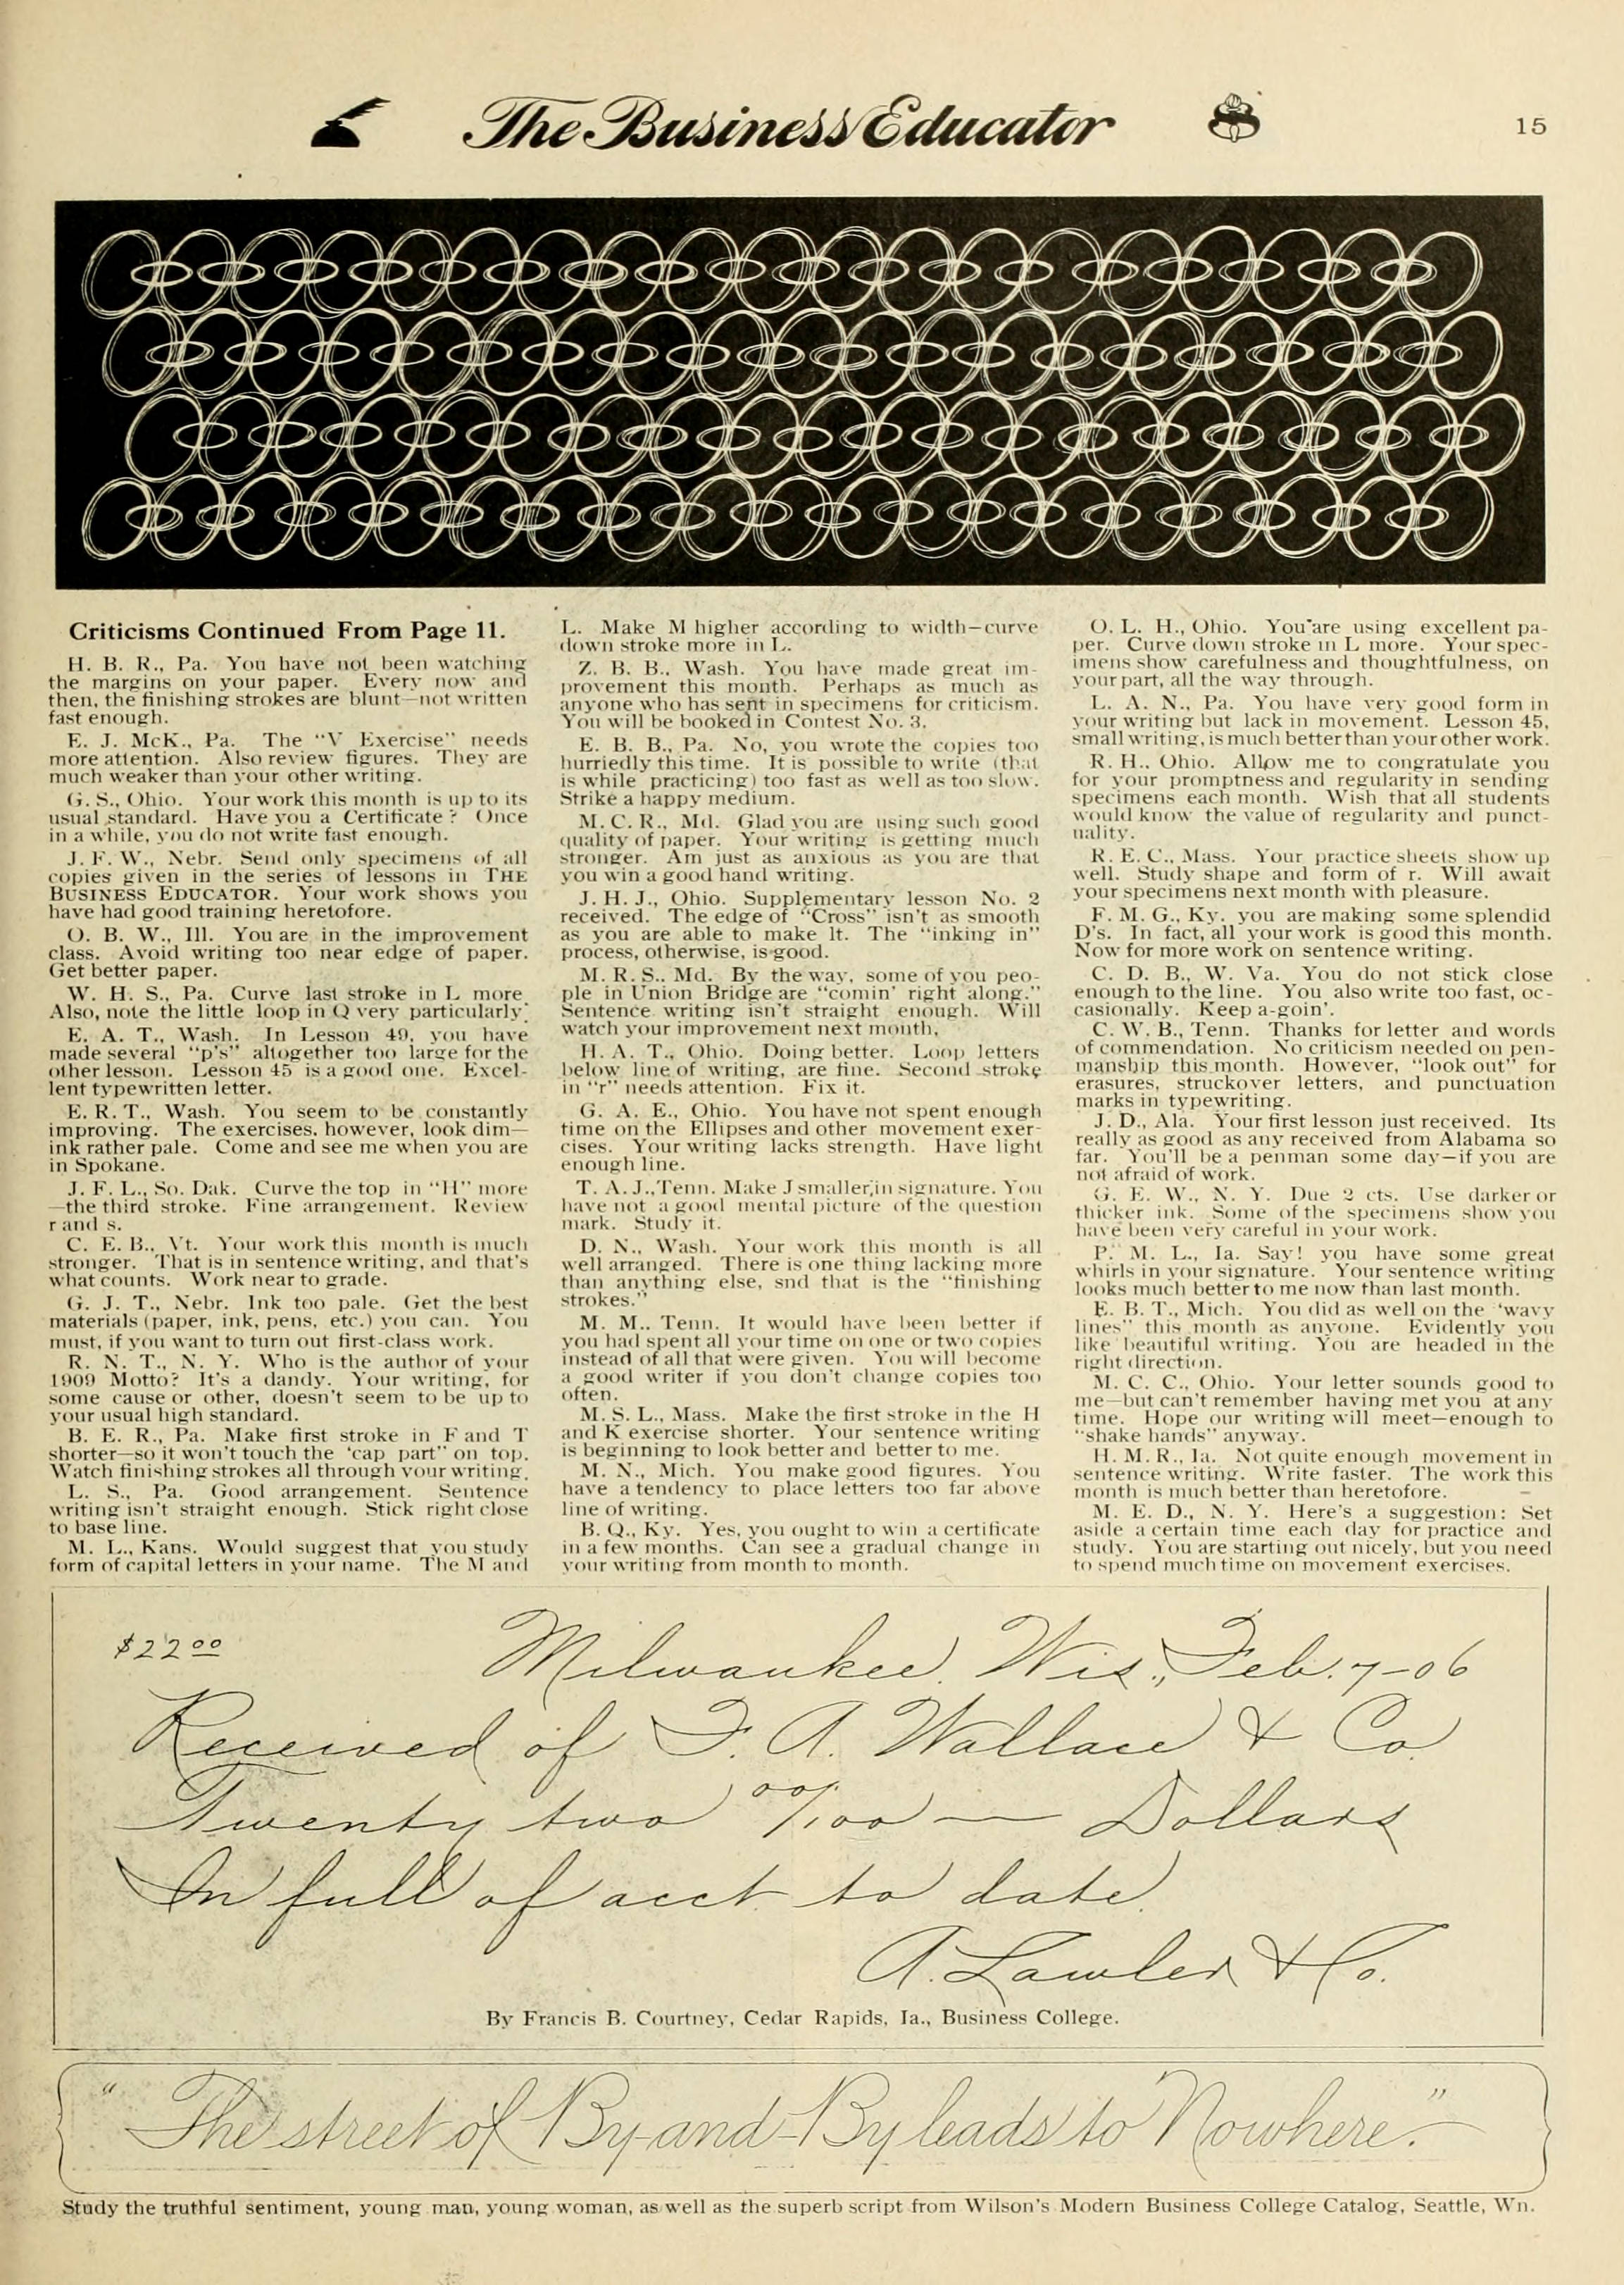 The Business Educator
15
Criticisms Continued From Page 11.
H. B. R., Pa. You have not been watching
the margins on your paper. Every now and
then, the finishing strokes are blunt—not written
fast enough.
E. J. McK., Pa. The "V Exercise" needs
more attention. Also review figures. They are
much weaker than your other writing.
G. S., Ohio. Your work this month is up to its
usual standard. Have you a Certificate? Once
in a while, you do not write fast enough.
J. F. W., Nebr. Send only specimens of all
copies given in the series of lessons in THE
BUSINESS EDUCATOR. Your work shows you
have had good training heretofore.
O. B. W., Ill. You are in the improvement
class. Avoid writing too near edge of paper.
Get better paper.
W. H. S., Pa. Curve last stroke in L more.
Also, note the little loop in Q very particularly.
E. A. T., Wash. In Lesson 49, you have
made several "p's" altogether too large for the
other lesson. Lesson 45 is a good one. Excel-
lent typewritten letter.
E. R. T., Wash. You seem to be constantly
improving. The exercises, however, look dim—
ink rather pale. Come and see me when you are
in Spokane.
J. F. L., So. Dak. Curve the top in "H" more
—the third stroke. Fine arrangement. Review
r and s.
C. E. B., Vt. Your work this month is much
stronger. That is in sentence writing, and that's
what counts. Work near to grade.
G. J. T., Nebr. Ink too pale. Get the best
materials (paper, ink, pens, etc.) you can. You
must, if you want to turn out first-class work.
R. N. T., N. Y. Who is the author of your
1909 Motto? It's a dandy. Your writing, for
some cause or other, doesn't seem to be up to
your usual high standard.
B. E. R., Pa. Make first stroke in F and T
shorter—so it won't touch the 'cap part" on top.
Watch finishing strokes all through your writing.
L. S., Pa. Good arrangement. Sentence
writing isn't straight enough. Stick right close
to base line.
M. L., Kans. Would suggest that you study
form of capital letters in your name. The M and
L. Make M higher according to width—curve
down stroke more in L.
Z. B. B., Wash. You have made great im-
provement this month. Perhaps as much as
anyone who has sent in specimens for criticism.
You will be booked in Contest No. 3.
E. B. B., Pa. No, you wrote the copies too
hurriedly this time. It is possible to write (that
is while practicing) too fast as well as too slow.
Strike a happy medium.
M. C. R., Md. Glad you are using such good
quality of paper. Your writing is getting much
stronger. Am just as anxious as you are that
you win a good hand writing.
J. H. J., Ohio. Supplementary lesson No. 2
received. The edge of "Cross" isn't as smooth
as you are able to make It. The "inking in"
process, otherwise, is good.
M. R. S.. Md. By the way, some of you peo-
ple in Union Bridge are "comin' right along."
Sentence writing isn't straight enough. Will
watch your improvement next month.
H. A. T., Ohio. Doing better. Loop letters
below line of writing, are fine. Second stroke
in "r" needs attention. Fix it.
G. A. E., Ohio. You have not spent enough
time on the Ellipses and other movement exer-
cises. Your writing lacks strength. Have light
enough line.
T. A. J., Tenn. Make J smaller, in signature. You
have not a good mental picture of the question
mark. Study it.
D. N., Wash. Your work this month is all
well arranged. There is one thing lacking more
than anything else, snd that is the "finishing
strokes."
M. M.. Tenn. It would have been better if
you had spent all your time on one or two copies
instead of all that were given. You will become
a good writer if you don't change copies too
often.
M. S. L., Mass. Make the first stroke in the H
and K exercise shorter. Your sentence writing
is beginning to look better and better to me.
M. N., Mich. You make good figures. You
have a tendency to place letters too far above
line of writing.
B. Q., Ky. Yes, you ought to win a certificate
in a few months. Can see a gradual change in
your writing from month to month.
O. L. H., Ohio. You are using excellent pa-
per. Curve down stroke in L more. Your spec-
imens show carefulness and thoughtfulness, on
your part, all the way through.
L. A. N., Pa. You have very good form in
your writing but lack in movement. Lesson 45,
small writing, is much better than your other work.
R. H.. Ohio. Allow me to congratulate you
for your promptness and regularity in sending
specimens each month. Wish that all students
would know the value of regularity and punct-
uality.
R. E. C., Mass. Your practice sheets show up
well. Study shape and form of r. Will await
your specimens next month with pleasure.
F. M. G., Ky. you are making some splendid
D's. In fact, all your work is good this month.
Now for more work on sentence writing.
C. D. B., W. Va. You do not stick close
enough to the line. You also write too fast, oc-
casionally. Keep a-goin'.
C. W. B., Tenn. Thanks for letter and words
of commendation. No criticism needed on pen-
manship this month. However, "look out" for
erasures, struckover letters, and punctuation
marks in typewriting.
J. D., Ala. Your first lesson just received. Its
really as good as any received from Alabama so
far. You'll be a penman some day—if you are
not afraid of work.
G. E. W., N. Y. Due 2 cts. Use darker or
thicker ink. Some of the specimens show you
have been very careful in your work.
P. M. L., Ia. Say! you have some great
whirls in your signature. Your sentence writing
looks much better to me now than last month.
E. B. T., Mich. You did as well on the 'wavy
lines" this month as anyone. Evidently you
like beautiful writing. You are headed in the
right direction.
M. C. C., Ohio. Your letter sounds good to
me—but can't remember having met you at any
time. Hope our writing will meet—enough to
"shake hands" anyway.
H. M. R., Ia. Not quite enough movement in
sentence writing. Write faster. The work this
month is much better than heretofore.
M. E. D., N. Y. Here's a suggestion: Set
aside a certain time each day for practice and
study. You are starting out nicely, but you need
to spend much time on movement exercises.
$22 00 Milwaukee, Wis., Feb. 7-06
Received of F. A. Wallace & Co.
Twenty two 00/100 — Dollars
In full of acct. to date.
A. Lawler & Co.
By Francis B. Courtney, Cedar Rapids, Ia., Business College.
"The street of By-and-By leads to Nowhere."
Study the truthful sentiment, young man, young woman, as well as the superb script from Wilson's Modern Business College Catalog, Seattle, Wn.